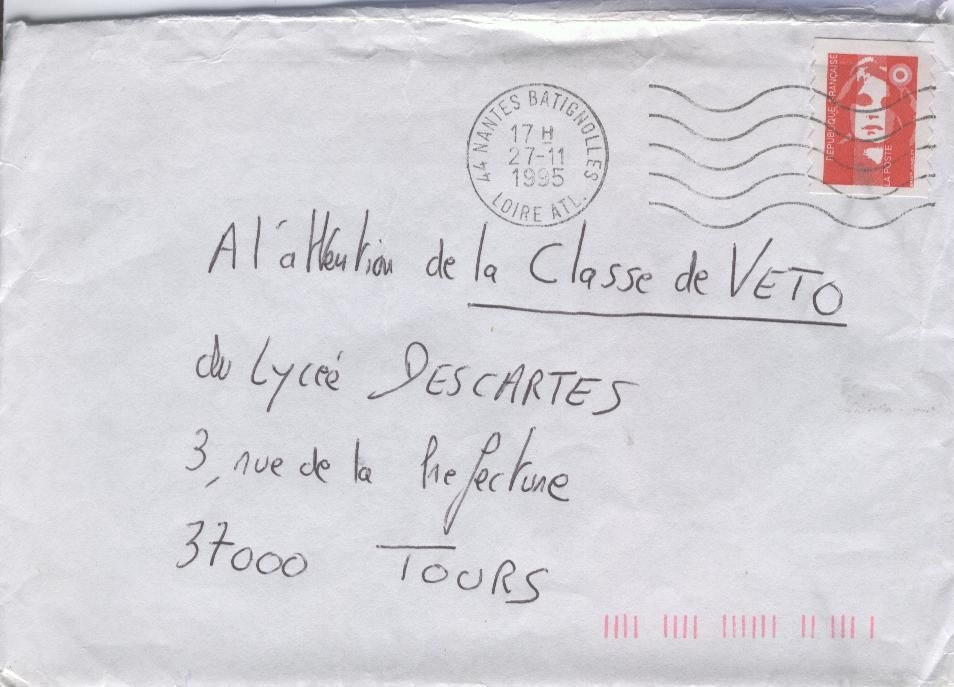 44 NANTES BATIGNOLLES
17 H
27-11
1995
LOIRE ATL.
REPUBLIQUE FRANÇAISE
LA POSTE
A l'attention de la Classe de VETO
du Lycée DESCARTES
3, rue de la Prefecture
37000 TOURS